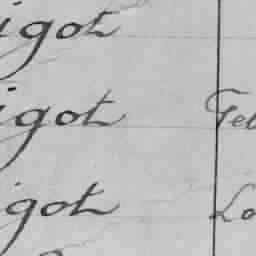 igot
igot Feb
igot Lo